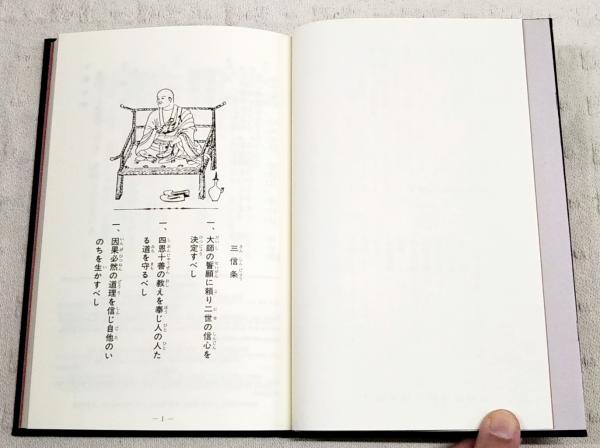 三信条
一、大師の誓願に頼り二世の信心を
決定すべし
一、四恩十善の教えを奉じ人の人た
る道を守るべし
一、因果必然の道理を信じ自他のい
のちを生かすべし
— 1 —